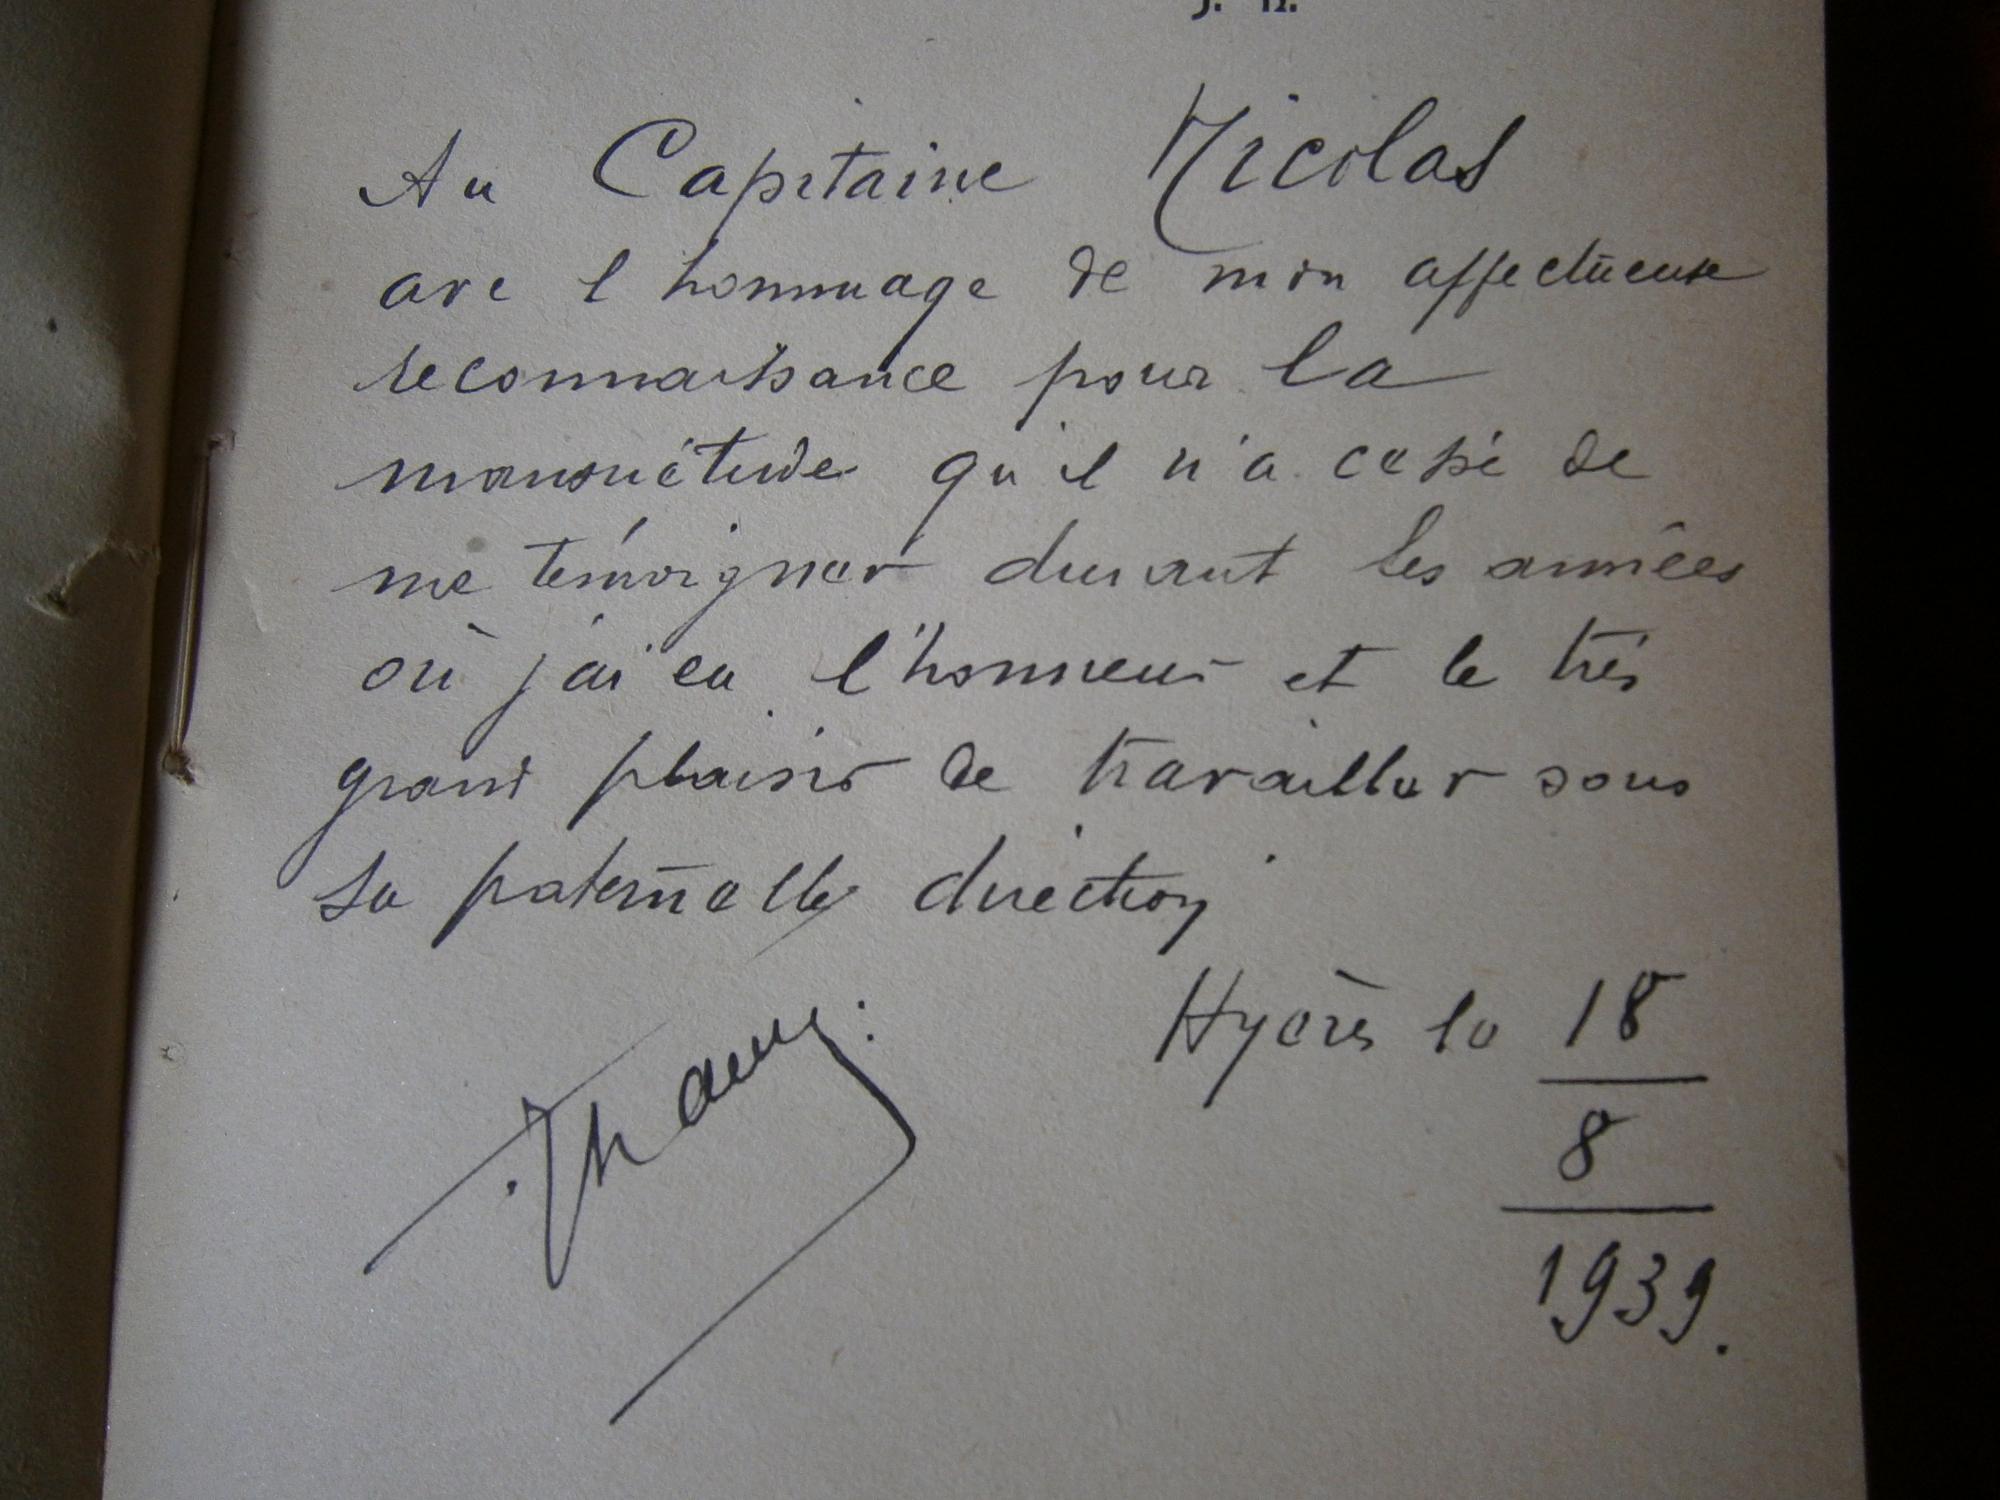 Au Capitaine Nicolas
avec l hommage de mon affectueuse
reconnaissance pour la
mansuétude qu'il n'a cessé de
me témoigner durant les années
où j'ai eu l'honneur et le très
grand plaisir de travailler sous
sa paternelle direction
Hyères le 18
8
1939.